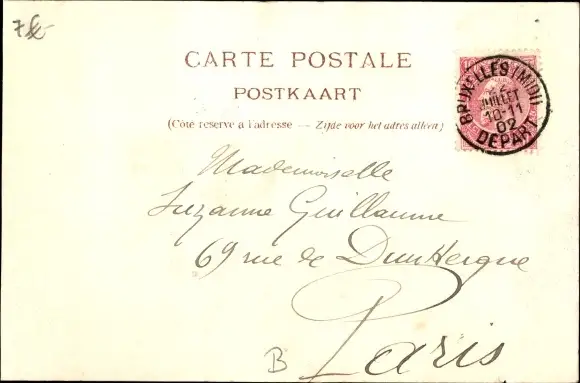 CARTE POSTALE
POSTKAART
(Côté réservé à l'adresse — Zijde voor het adres alleen)
BRUXELLES (MIDI)
JUILLET
10-11
02
DEPART
Mademoiselle
Suzanne Guillaume
69 rue de Dunkerque
Paris
B